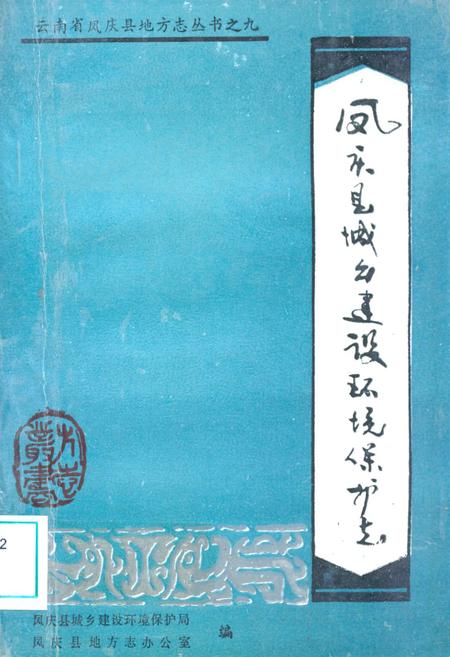 云南省凤庆县地方志丛书之九
凤庆县城乡建设环境保护志
方志
叢書
2
凤庆县城乡建设环境保护局
凤庆县地方志办公室
编